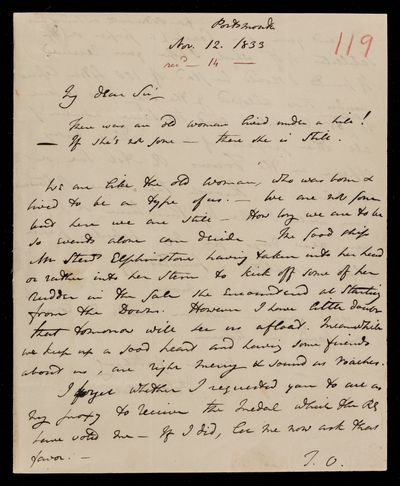 Portsmouth
Nov. 12. 1833
recd — 14 —
119
My dear Sir
There was an old woman lived under a hill!
— If she's not gone — there she is still.
We are like the old woman, who was born &
lived to be a type of us. — We are not gone
but here we are still — How long we are to be
so events alone can decide — The good ship
Mt Stewt Elphinstone having taken into her head
or rather into her stern to kick off some of her
rudder in the gale she encountered at starting
from the Downs. However I have little doubt
that tomorrow will see us afloat. Meanwhile
we keep up a good heart and having some friends
about us, are right merry & sound as roaches.
I forget whether I requested you to act as
my proxy to receive the medal which the RS
have voted me — If I did, let me now ask that
favor. —
T. O.